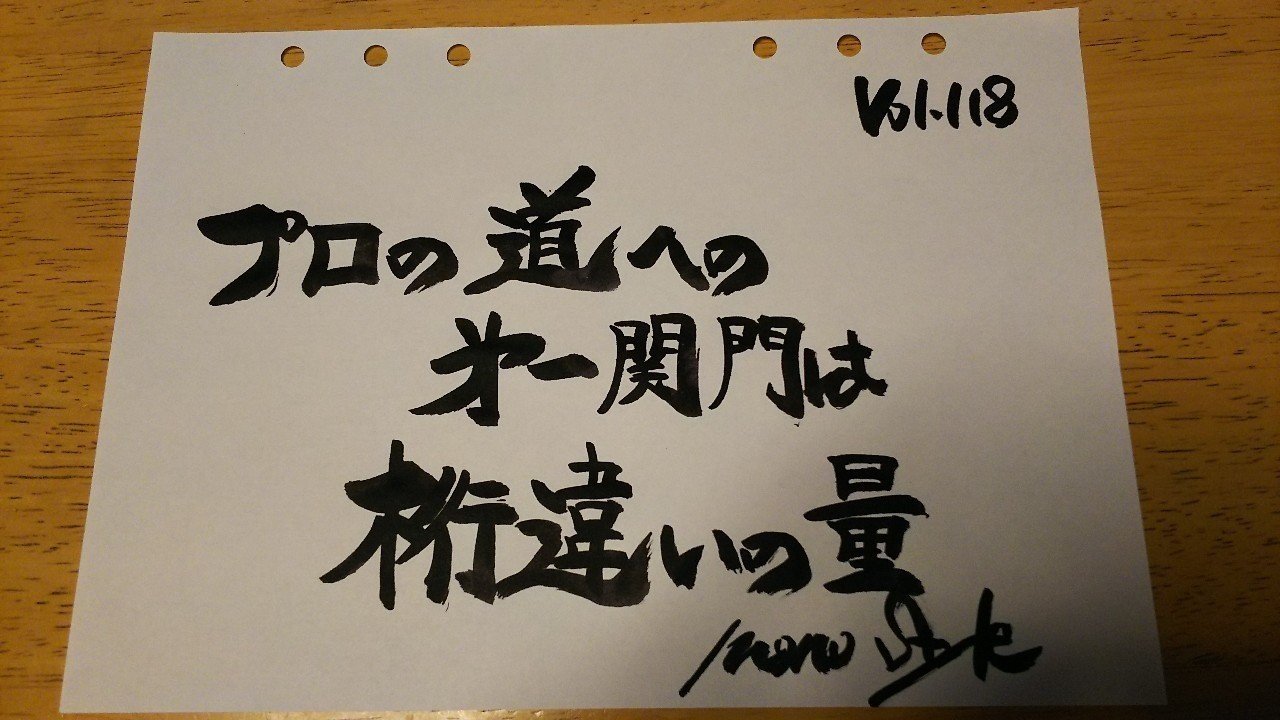 Vol.118
プロの道への
第一関門は
桁違いの量